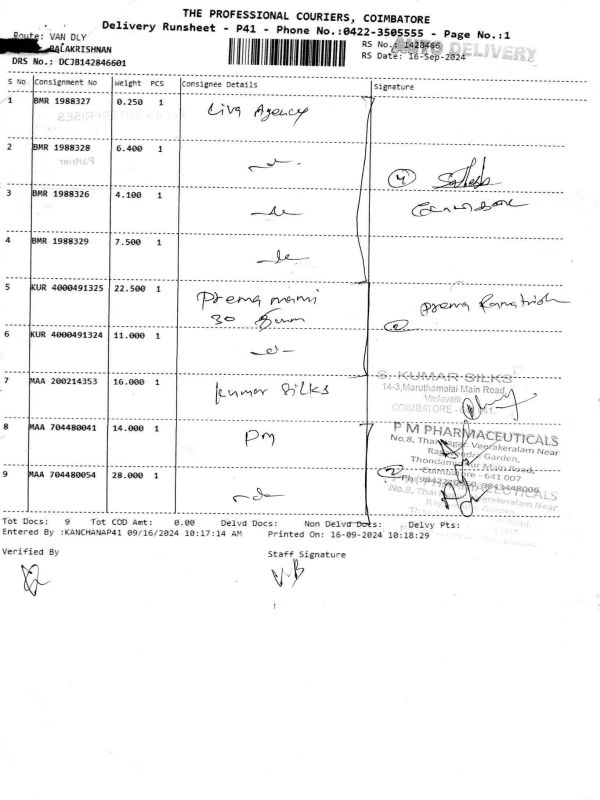 THE PROFESSIONAL COURIERS, COIMBATORE
Delivery Runsheet - P41 - Phone No.:0422-3505555 - Page No.:1
Route: VAN DLY
BALAKRISHNAN
DRS No.: DCJB142846601
RS No.: 1428466
RS Date: 16-Sep-2024
AUTO DELIVERY
S No Consignment No Weight PCS Consignee Details Signature
1 BMR 1988327 0.250 1 Liva Agency
2 BMR 1988328 6.400 1
4 Sathesh
3 BMR 1988326 4.100 1
4 BMR 1988329 7.500 1
5 KUR 4000491325 22.500 1 Prema mami
30
Prema
2
6 KUR 4000491324 11.000 1
7 MAA 200214353 16.000 1 kumar silks
S. KUMAR SILKS
14-3, Maruthamalai Main Road,
Vadavalli
COIMBATORE - 641 041.
8 MAA 704480041 14.000 1 PM
P M PHARMACEUTICALS
No.8, Thai Nagar, Veerakeralam Near
Garden,
Main Road,
Coimbatore - 641 007
2
9 MAA 704480054 28.000 1
P M PHARMACEUTICALS
No.8, Thai Nagar, Veerakeralam Near
Tot Docs: 9 Tot COD Amt: 0.00 Delvd Docs: Non Delvd Docs: Delvy Pts:
Entered By :KANCHANAP41 09/16/2024 10:17:14 AM Printed On: 16-09-2024 10:18:29
Verified By
Staff Signature
V.B